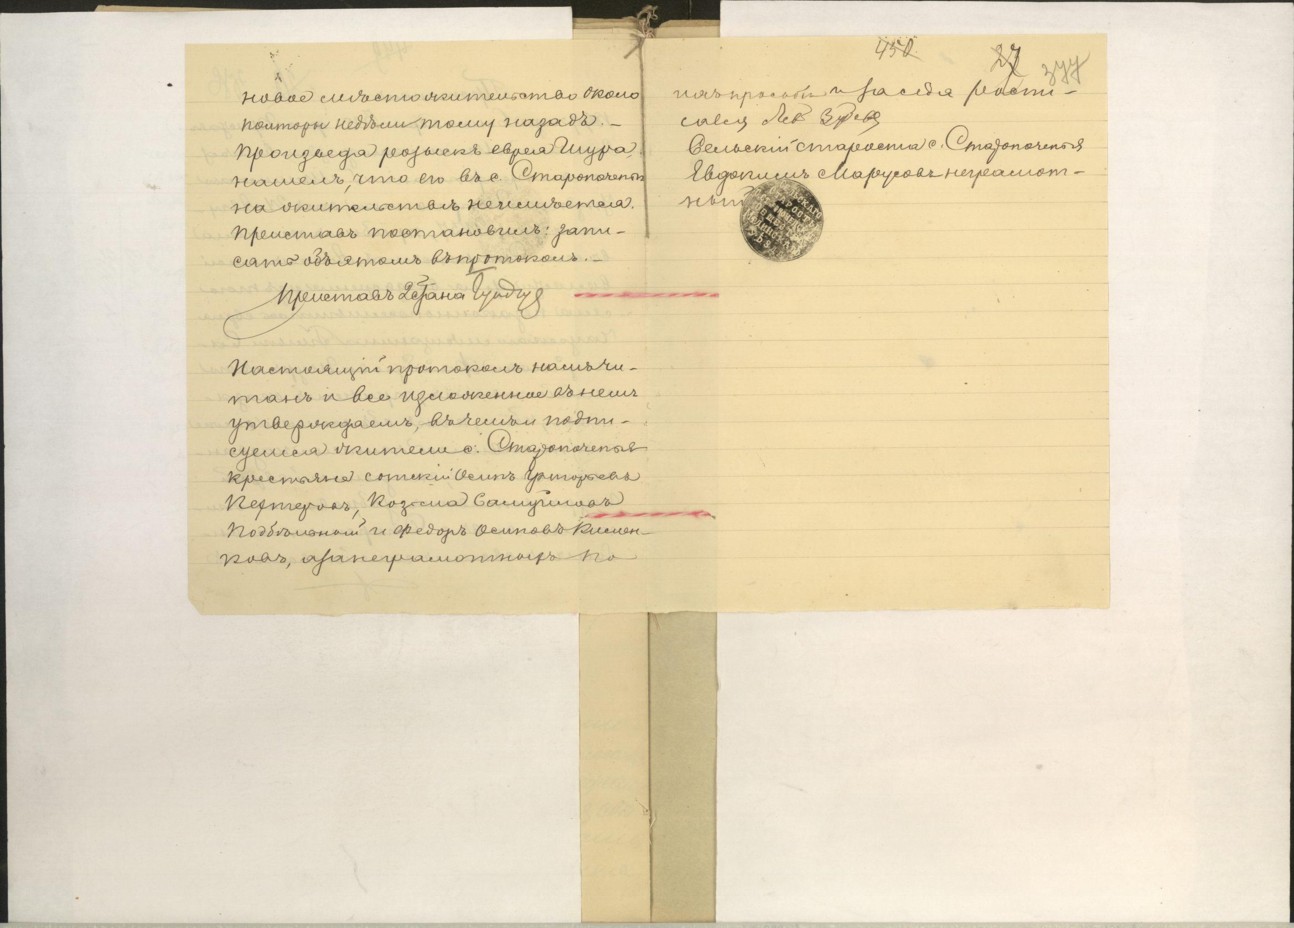 450
27
377
новое мѣсто жительство около
полторы недѣли тому назадъ. —
Произведя розыскъ еврея Шура,
нашелъ, что его въ с. Старопочепьи
на жительствѣ не имѣется.
Приставъ постановилъ: запи-
сать объ этомъ въ протоколъ. —
Приставъ 2 Стана
Настоящій протоколъ намъ чи-
танъ и все изложенное въ немъ
утверждаемъ, въ чемъ и подпи-
суемся жители с. Старопочепья
крестьяне сотскій Осипъ Григорьевъ
Козьма Самуйловъ
и Федоръ Осиповъ Климен-
ковъ, а за неграмотныхъ по
ихъ просьбѣ и за себя роспи-
сался
Сельскій староста с. Старопочепья
Евдокимъ Марусовъ неграмот-
ный